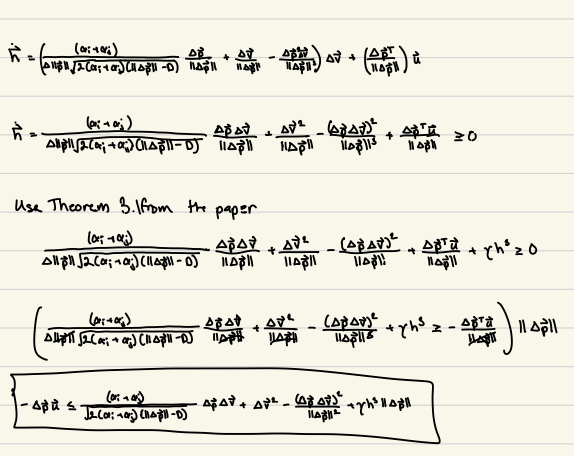 ḣ = ( (αi+αj) / Δ||p⃗||√2(αi+αj)(||Δp⃗||-D) Δp⃗/||Δp⃗|| + Δv⃗/||Δp⃗|| - Δp⃗²Δv⃗/||Δp⃗||³ ) Δv⃗ + ( Δp⃗ᵀ/||Δp⃗|| ) u⃗
ḣ = (αi+αj) / Δ||p⃗||√2(αi+αj)(||Δp⃗||-D) Δp⃗Δv⃗/||Δp⃗|| + Δv⃗²/||Δp⃗|| - (Δp⃗Δv⃗)²/||Δp⃗||³ + Δp⃗ᵀu⃗/||Δp⃗|| ≥ 0
Use Theorem 3.1 from the paper
(αi+αj) / Δ||p⃗||√2(αi+αj)(||Δp⃗||-D) Δp⃗Δv⃗/||Δp⃗|| + Δv⃗²/||Δp⃗|| - (Δp⃗Δv⃗)²/||Δp⃗||³ + Δp⃗ᵀu⃗/||Δp⃗|| + γh³ ≥ 0
( (αi+αj) / Δ||p⃗||√2(αi+αj)(||Δp⃗||-D) Δp⃗Δv⃗/||Δp⃗|| + Δv⃗²/||Δp⃗|| - (Δp⃗Δv⃗)²/||Δp⃗||³ + γh³ ≥ - Δp⃗ᵀu⃗/||Δp⃗|| ) ||Δp⃗||
-Δp⃗u⃗ ≤ (αi+αj) / √2(αi+αj)(||Δp⃗||-D) Δp⃗Δv⃗ + Δv⃗² - (Δp⃗Δv⃗)²/||Δp⃗||² + γh³||Δp⃗||